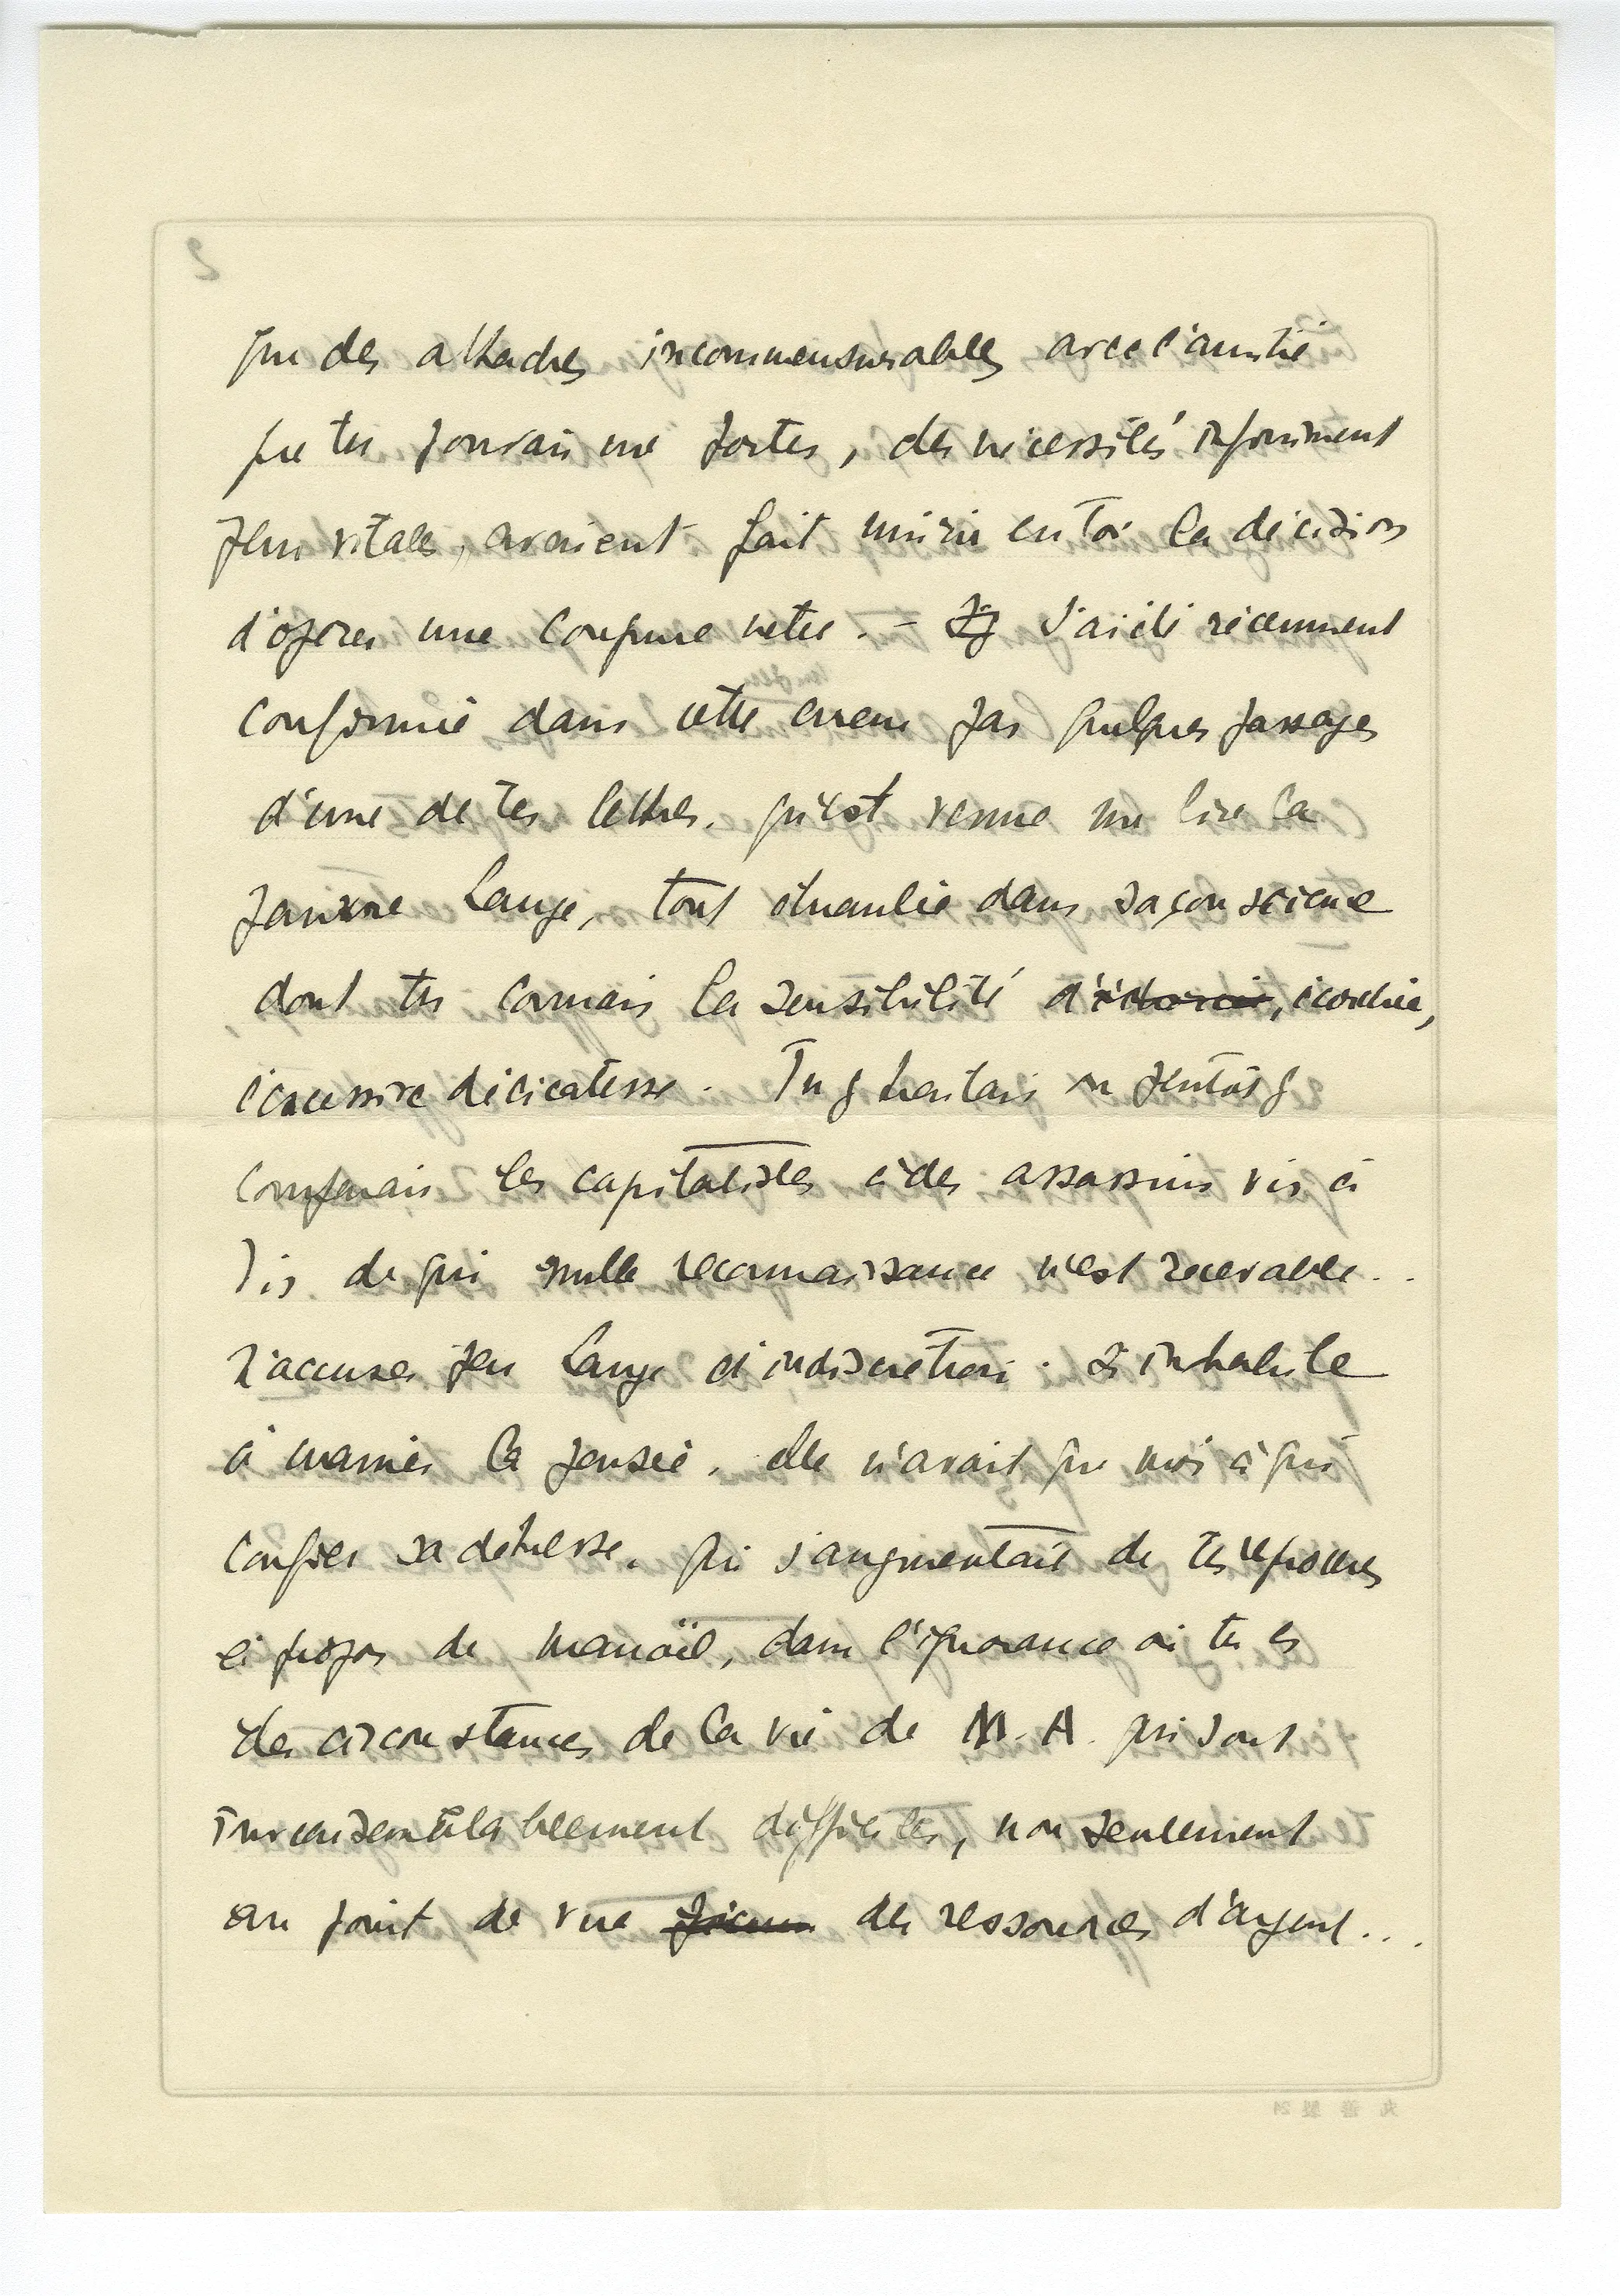 que des attaches incommensurables avec l'amitié
que tu pouvais me porter, des nécessités infiniment
plus vitales, avaient fait mûrir en toi la décision
d'opérer une coupure nette. – J'ai été récemment
confirmé dans cette erreur par quelques passages
d'une de tes lettres, qu'est venue me lire la
pauvre Lange, tout ébranlée dans sa conscience
dont tu connais la sensibilité d' écorchée,
l'excessive délicatesse. Tu y traitais ou plutôt y
comparais les capitalistes à des assassins vis à
vis de qui nulle reconnaissance n'est recevable..
N'accuse pas Lange d'indiscrétion. Si inhabile
à manier la pensée, elle n'avait que moi à qui
confier sa détresse, qui s'augmentait de tes reproches
à propos de Manoël, dans l'ignorance où tu es
des circonstances de la vie de M. A. qui sont
invraisemblablement difficiles, non seulement
au point de vue des ressources d'argent...
2